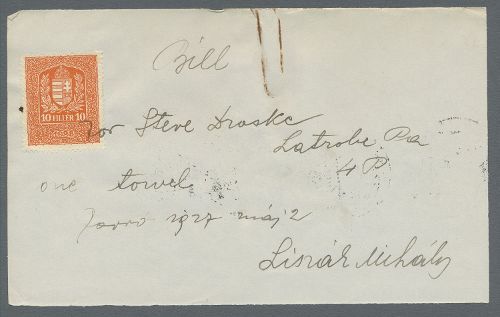 Bill
10 FILLÉR 10
for Steve Droske
Latrobe Pa
4 P.
one towel
1927 máj 2
Liszár Mihály